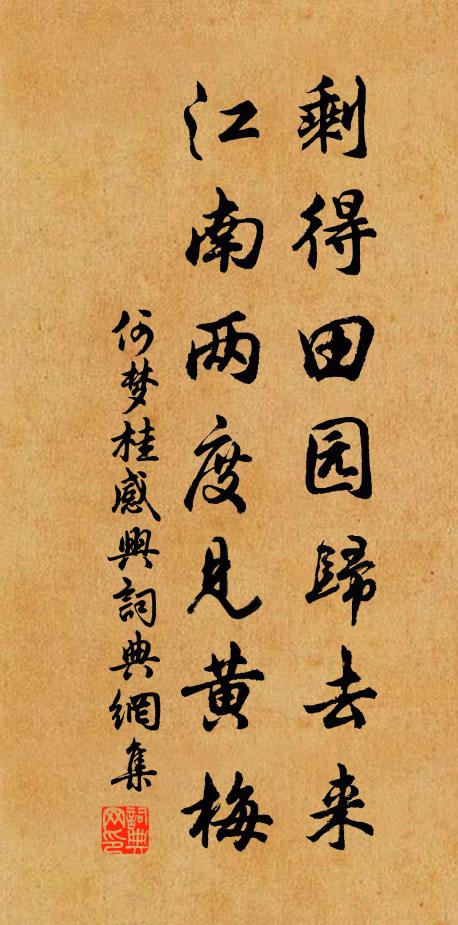 剩得田园歸去来
江南两度見黄梅
何梦桂感興詞典網集
詞典网印